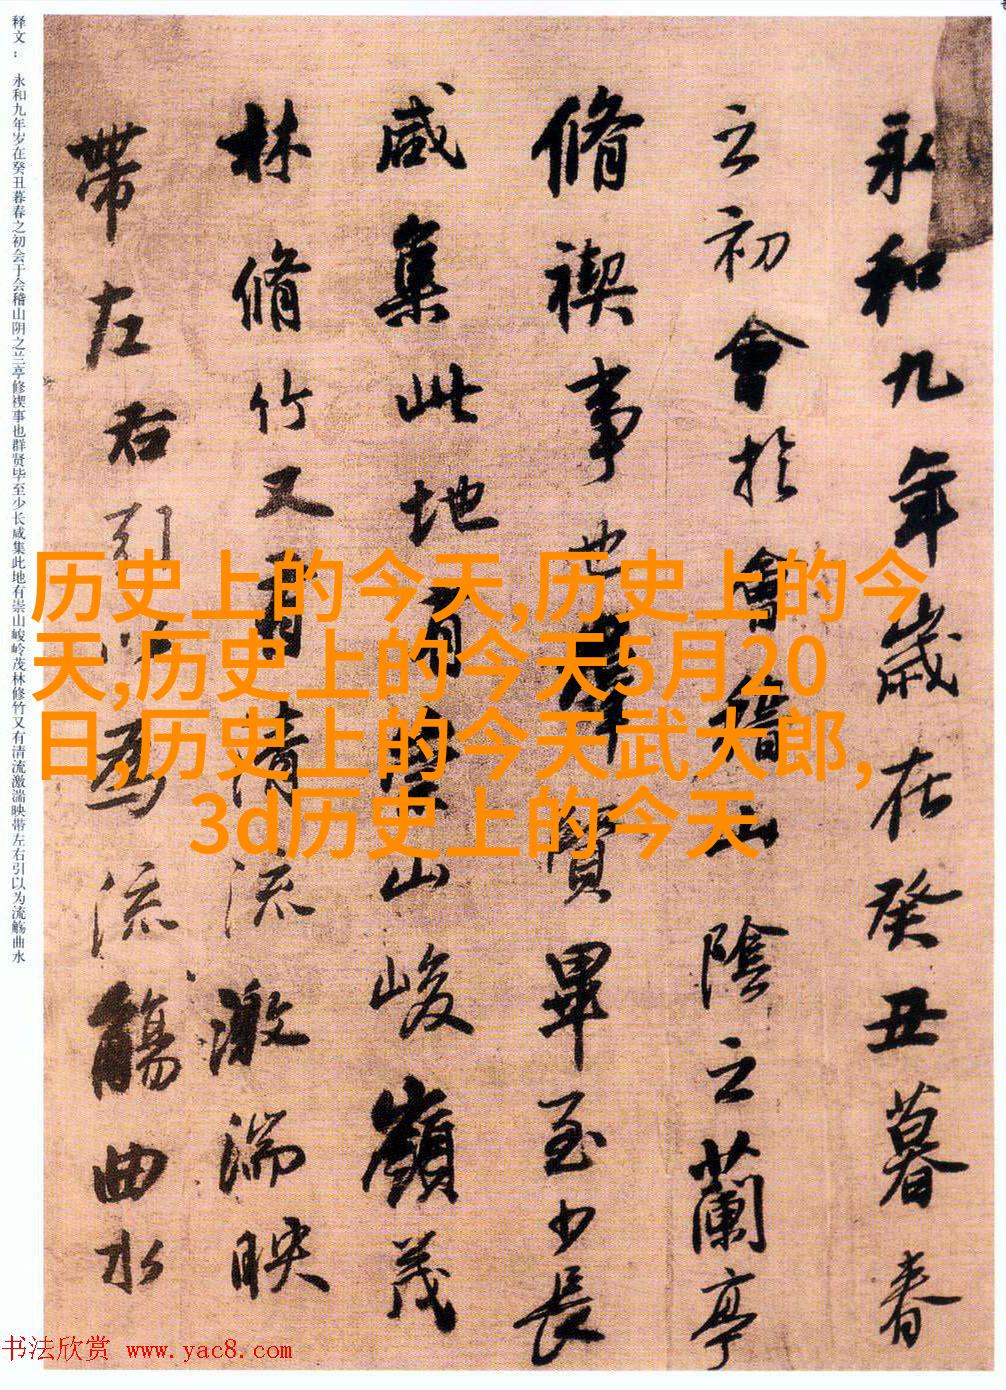 释文：永和九年岁在癸丑暮春之初会于会稽山阴之兰亭修禊事也群贤毕至少长咸集此地有崇山峻岭茂林修竹又有清流激湍映带左右引以为流觞曲水
永和九年歲在癸丑暮春
之初會於會稽山陰之蘭亭
脩禊事也羣賢畢至少長
咸集此地有崇山峻嶺茂
林脩竹又有清流激湍映
帶左右引以為流觴曲水
历史上的今天,历史上的今
天,历史上的今天5月20
日,历史上的今天武大郎,
3d历史上的今天
书法欣赏 www.yac8.com